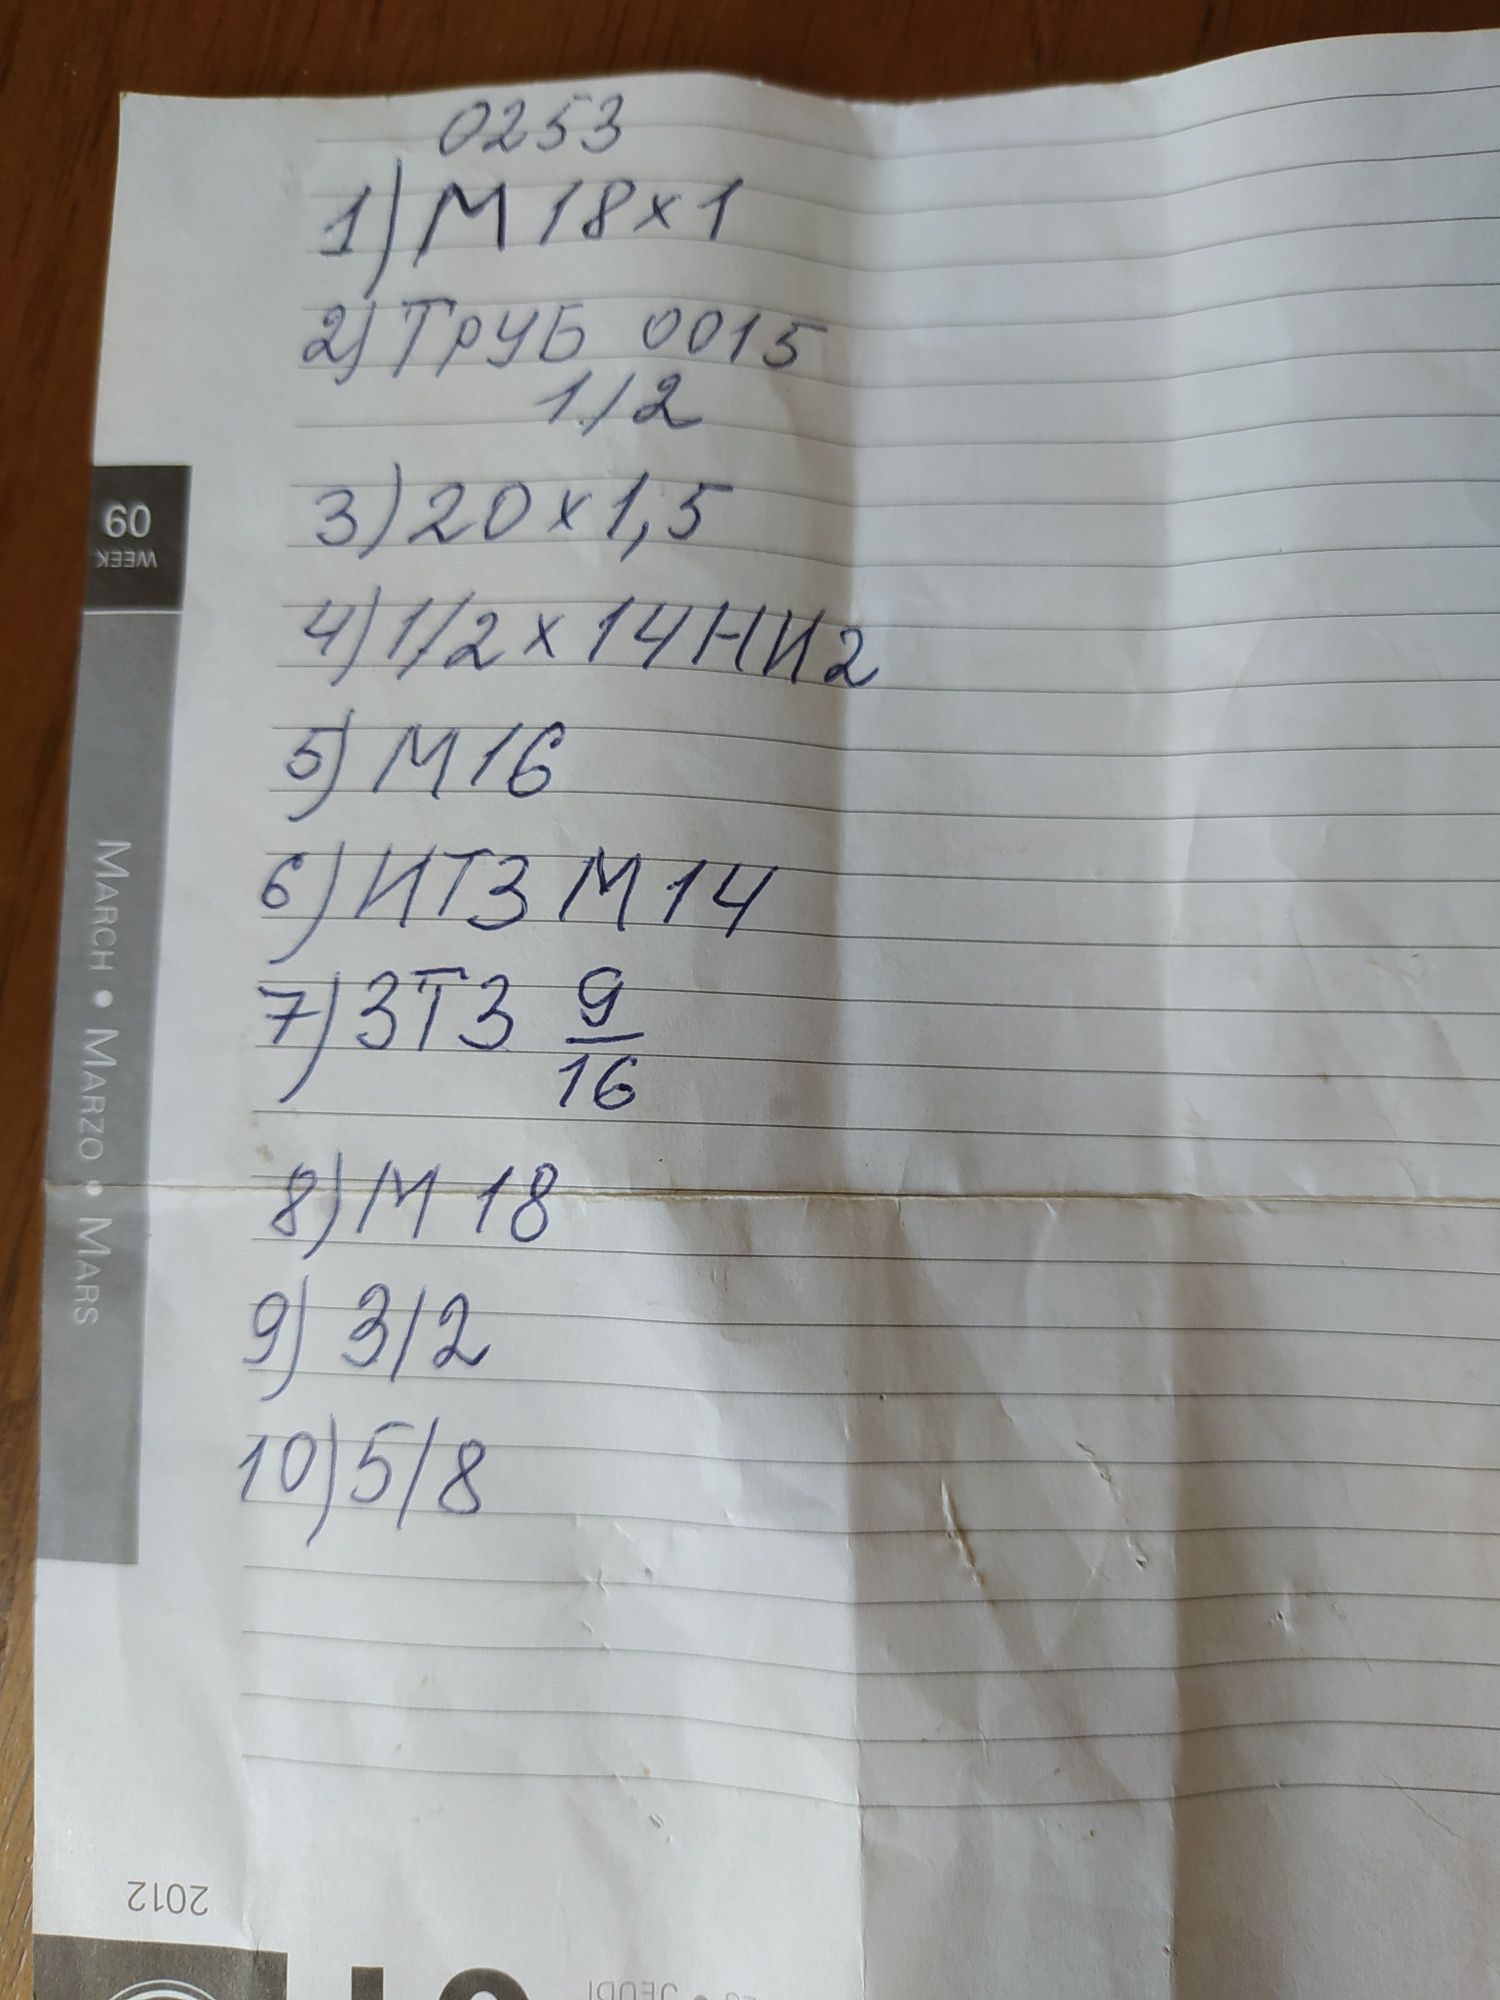 0253
1) М 18 х 1
2) ТРУБ 0015
1/2
3) 20 х 1,5
4) 1/2 х 14 НИ2
5) М 16
6) ИТЗ М 14
7) ЗТЗ 9/16
8) М 18
9) 3/2
10) 5/8
WEEK
09
MARCH • MARZO • MARS
2012
JEUDI